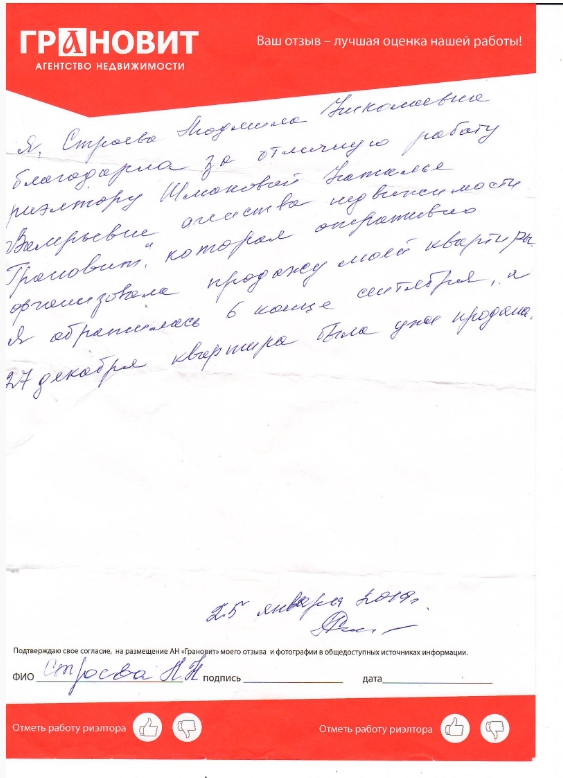 ГРАНОВИТ
АГЕНТСТВО НЕДВИЖИМОСТИ
Ваш отзыв – лучшая оценка нашей работы!
Я, Строева Людмила Николаевна
благодарна за отличную работу
риэлтору Шмаковой Наталье
Валерьевне агенства недвижимости
"Грановит", которая оперативно
организовала продажу моей квартиры.
Я обратилась в конце сентября, а
27 декабря квартира была уже продана.
25 января 2019г.
Подтверждаю свое согласие, на размещение АН «Грановит» моего отзыва и фотографии в общедоступных источниках информации.
ФИО Строева Л Н подпись дата
Отметь работу риэлтора Отметь работу риэлтора